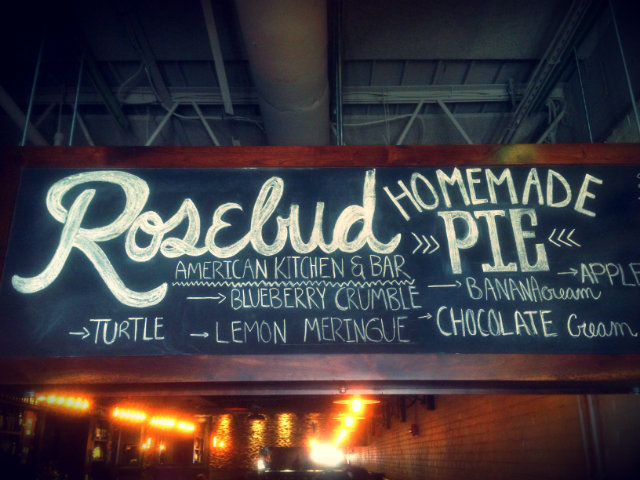 Rosebud
AMERICAN KITCHEN & BAR
HOMEMADE
>>> PIE <<<
→ APPLE
→ BANANA cream
→ BLUEBERRY CRUMBLE
→ CHOCOLATE Cream
→ TURTLE
→ LEMON MERINGUE